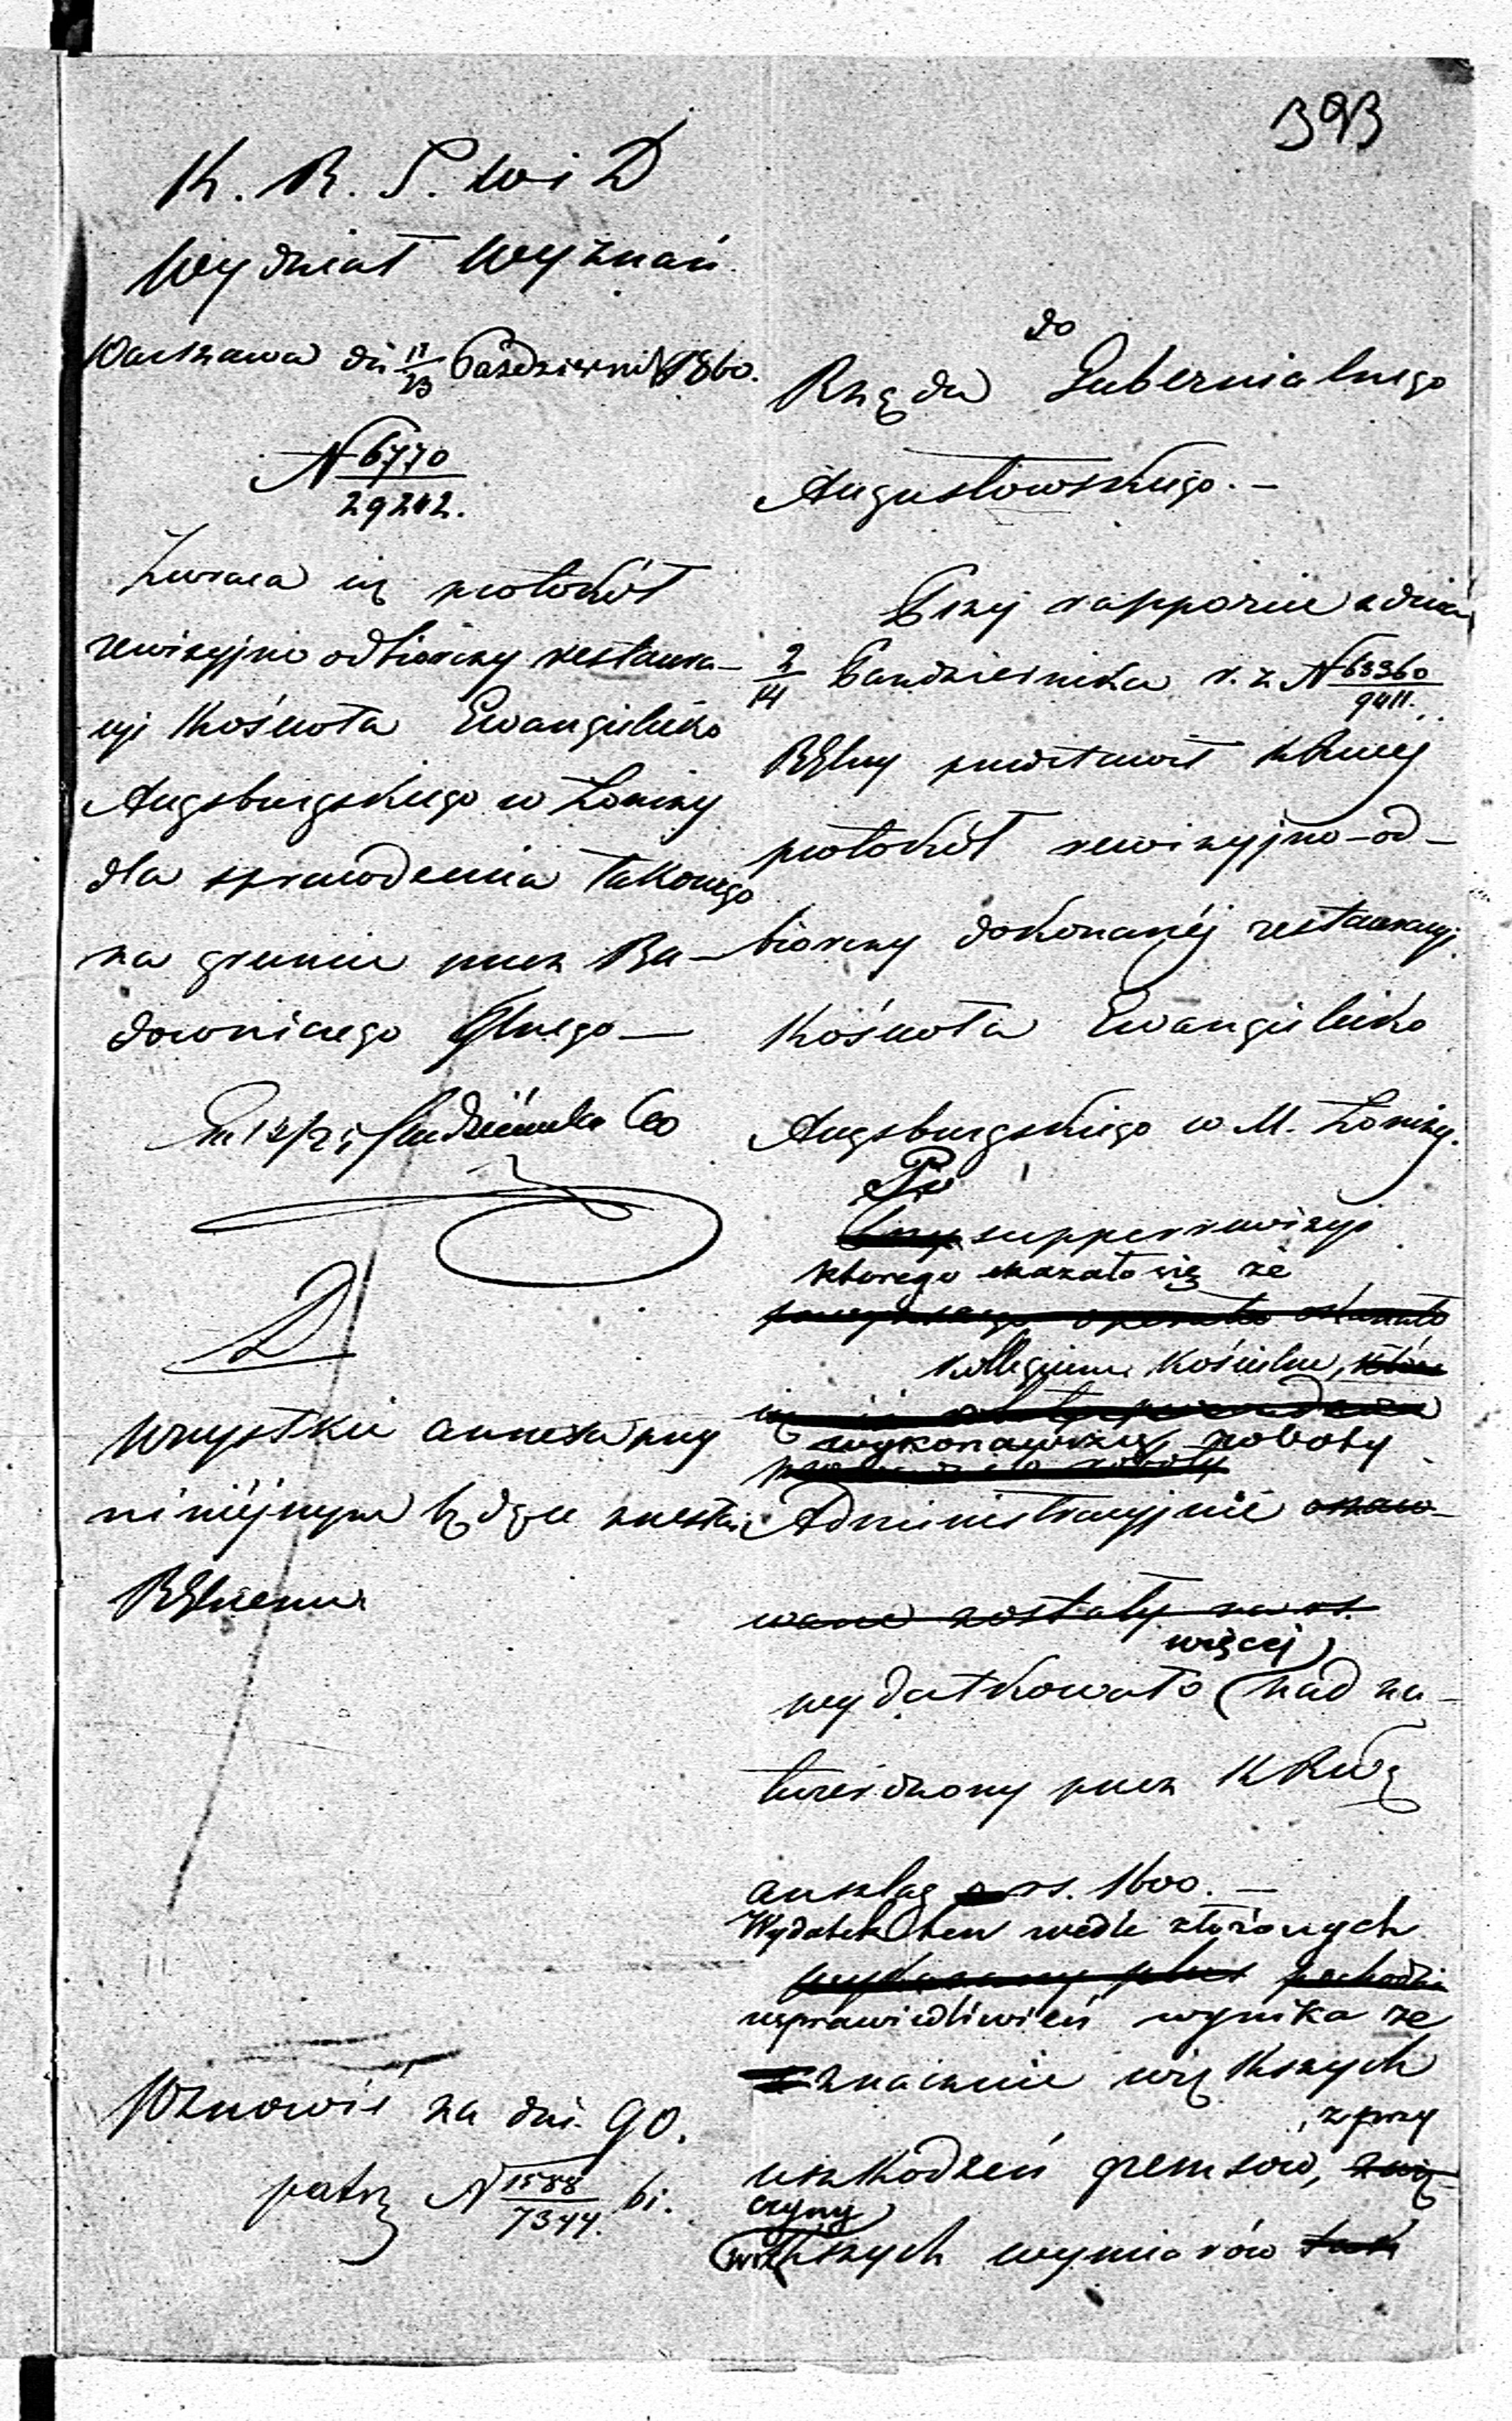 393
K. R. S. W i D
Wydział Wyznań
Warszawa dn 11/23 Październik 1860.
N 6770/29242.
Zwraca się protokół
rewizyjno odbiorczy restaura-
cyi Kościoła Ewangielicko
Augsburgskiego w Łomży
dla sprawdzenia takowego
na gruncie przez Bu-
downiczego Glnego —
Wszystkie annexa przy
niniejszym będące zwesti
RGlnemu
Wznowić za dni 90.
patrz N 1588/7344. 61.
do
Rządu Gubernialnego
Augustowskiego. —
Przy rapporcie z dnia
2/14 Października r. z. N 63360/9411.
RGlny przedstawił KRwej
protokół rewizyjno-od-
biorczy dokonanéj restauracyi
Kościoła Ewangielicko
Augsburgskiego w M. Łomży.
Po
Przy supperrewizyi
którego okazało się że
okazało
kollegium Kościelne, które
wykonawszy roboty
Administracyjnie oszaco-
wane zostały na rs.
więcej
wydatkowało nad za-
twierdzony przez KRwą
anszlag rs. 1600. —
Wydatek ten wedle złożonych
wykazany plus pochodzi
usprawiedliwień wynika ze
znacznie większych
z przy
uszkodzeń gzemsów, zwię-
czyny
większych wymiarów tak